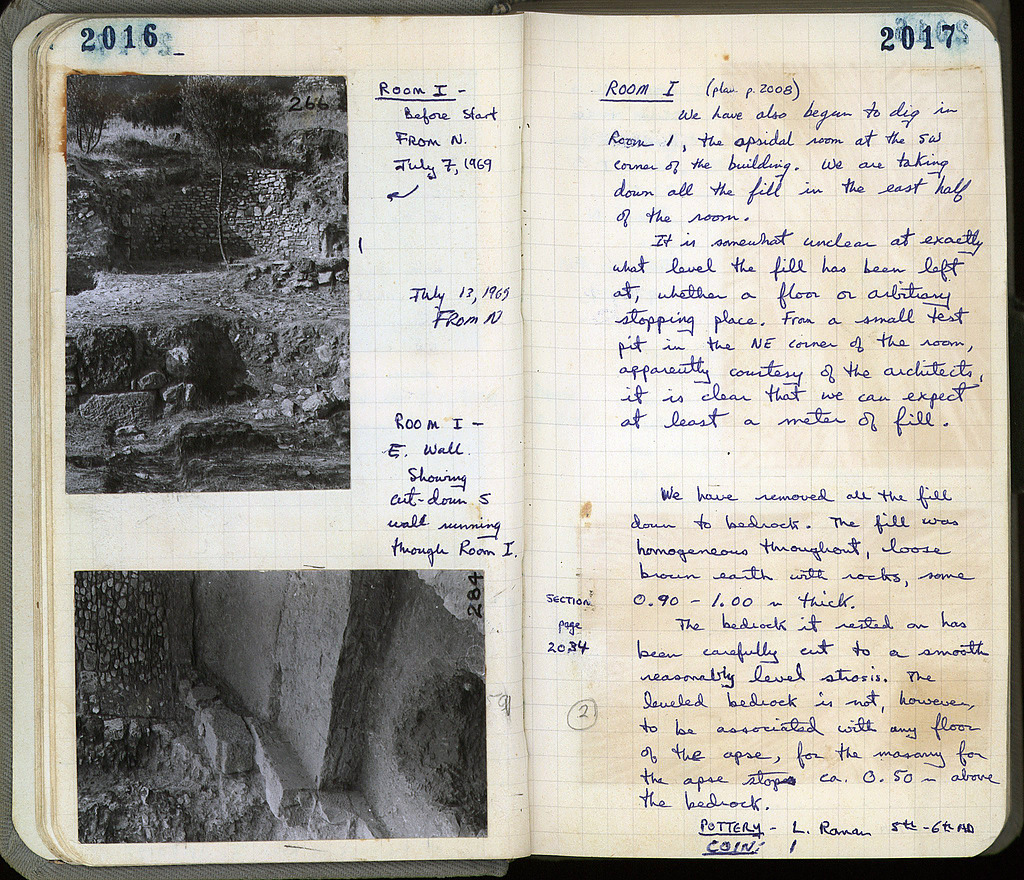 2016
266
ROOM I -
Before Start
FROM N.
July 7, 1969
July 13, 1969
FROM N
ROOM I -
E. Wall
Showing
cut-down S
wall running
through Room I.
284
2017
ROOM I (plan p. 2008)
We have also begun to dig in
Room 1, the apsidal room at the SW
corner of the building. We are taking
down all the fill in the east half
of the room.
It is somewhat unclear at exactly
what level the fill has been left
at, whether a floor or arbitrary
stopping place. From a small test
pit in the NE corner of the room,
apparently courtesy of the architects,
it is clear that we can expect
at least a meter of fill.
We have removed all the fill
down to bedrock. The fill was
homogeneous throughout, loose
brown earth with rocks, some
0.90 - 1.00 m thick.
SECTION
page
2034
The bedrock it rested on has
been carefully cut to a smooth
reasonably level strosis. The
leveled bedrock is not, however,
to be associated with any floor
of the apse, for the masonry for
the apse stops ca. 0.50 m above
the bedrock.
2
POTTERY - L. Roman 5th - 6th AD
COIN: 1